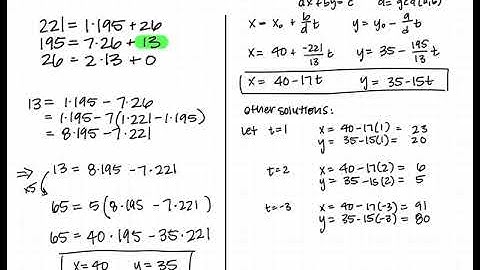 221 = 1·195 + 26
195 = 7·26 + 13
26 = 2·13 + 0
13 = 1·195 - 7·26
= 1·195 - 7(1·221 - 1·195)
= 8·195 - 7·221
⇒ 13 = 8·195 - 7·221
x5
65 = 5(8·195 - 7·221)
65 = 40·195 - 35·221
x = 40 y = 35
x = x₀ + b/d t y = y₀ - a/d t
x = 40 + -221/13 t y = 35 - 195/13 t
x = 40 - 17t y = 35 - 15t
other solutions:
let t=1 x = 40 - 17(1) = 23
y = 35 - 15(1) = 20
t=2 x = 40 - 17(2) = 6
y = 35 - 15(2) = 5
t=-3 x = 40 - 17(-3) = 91
y = 35 - 15(-3) = 80